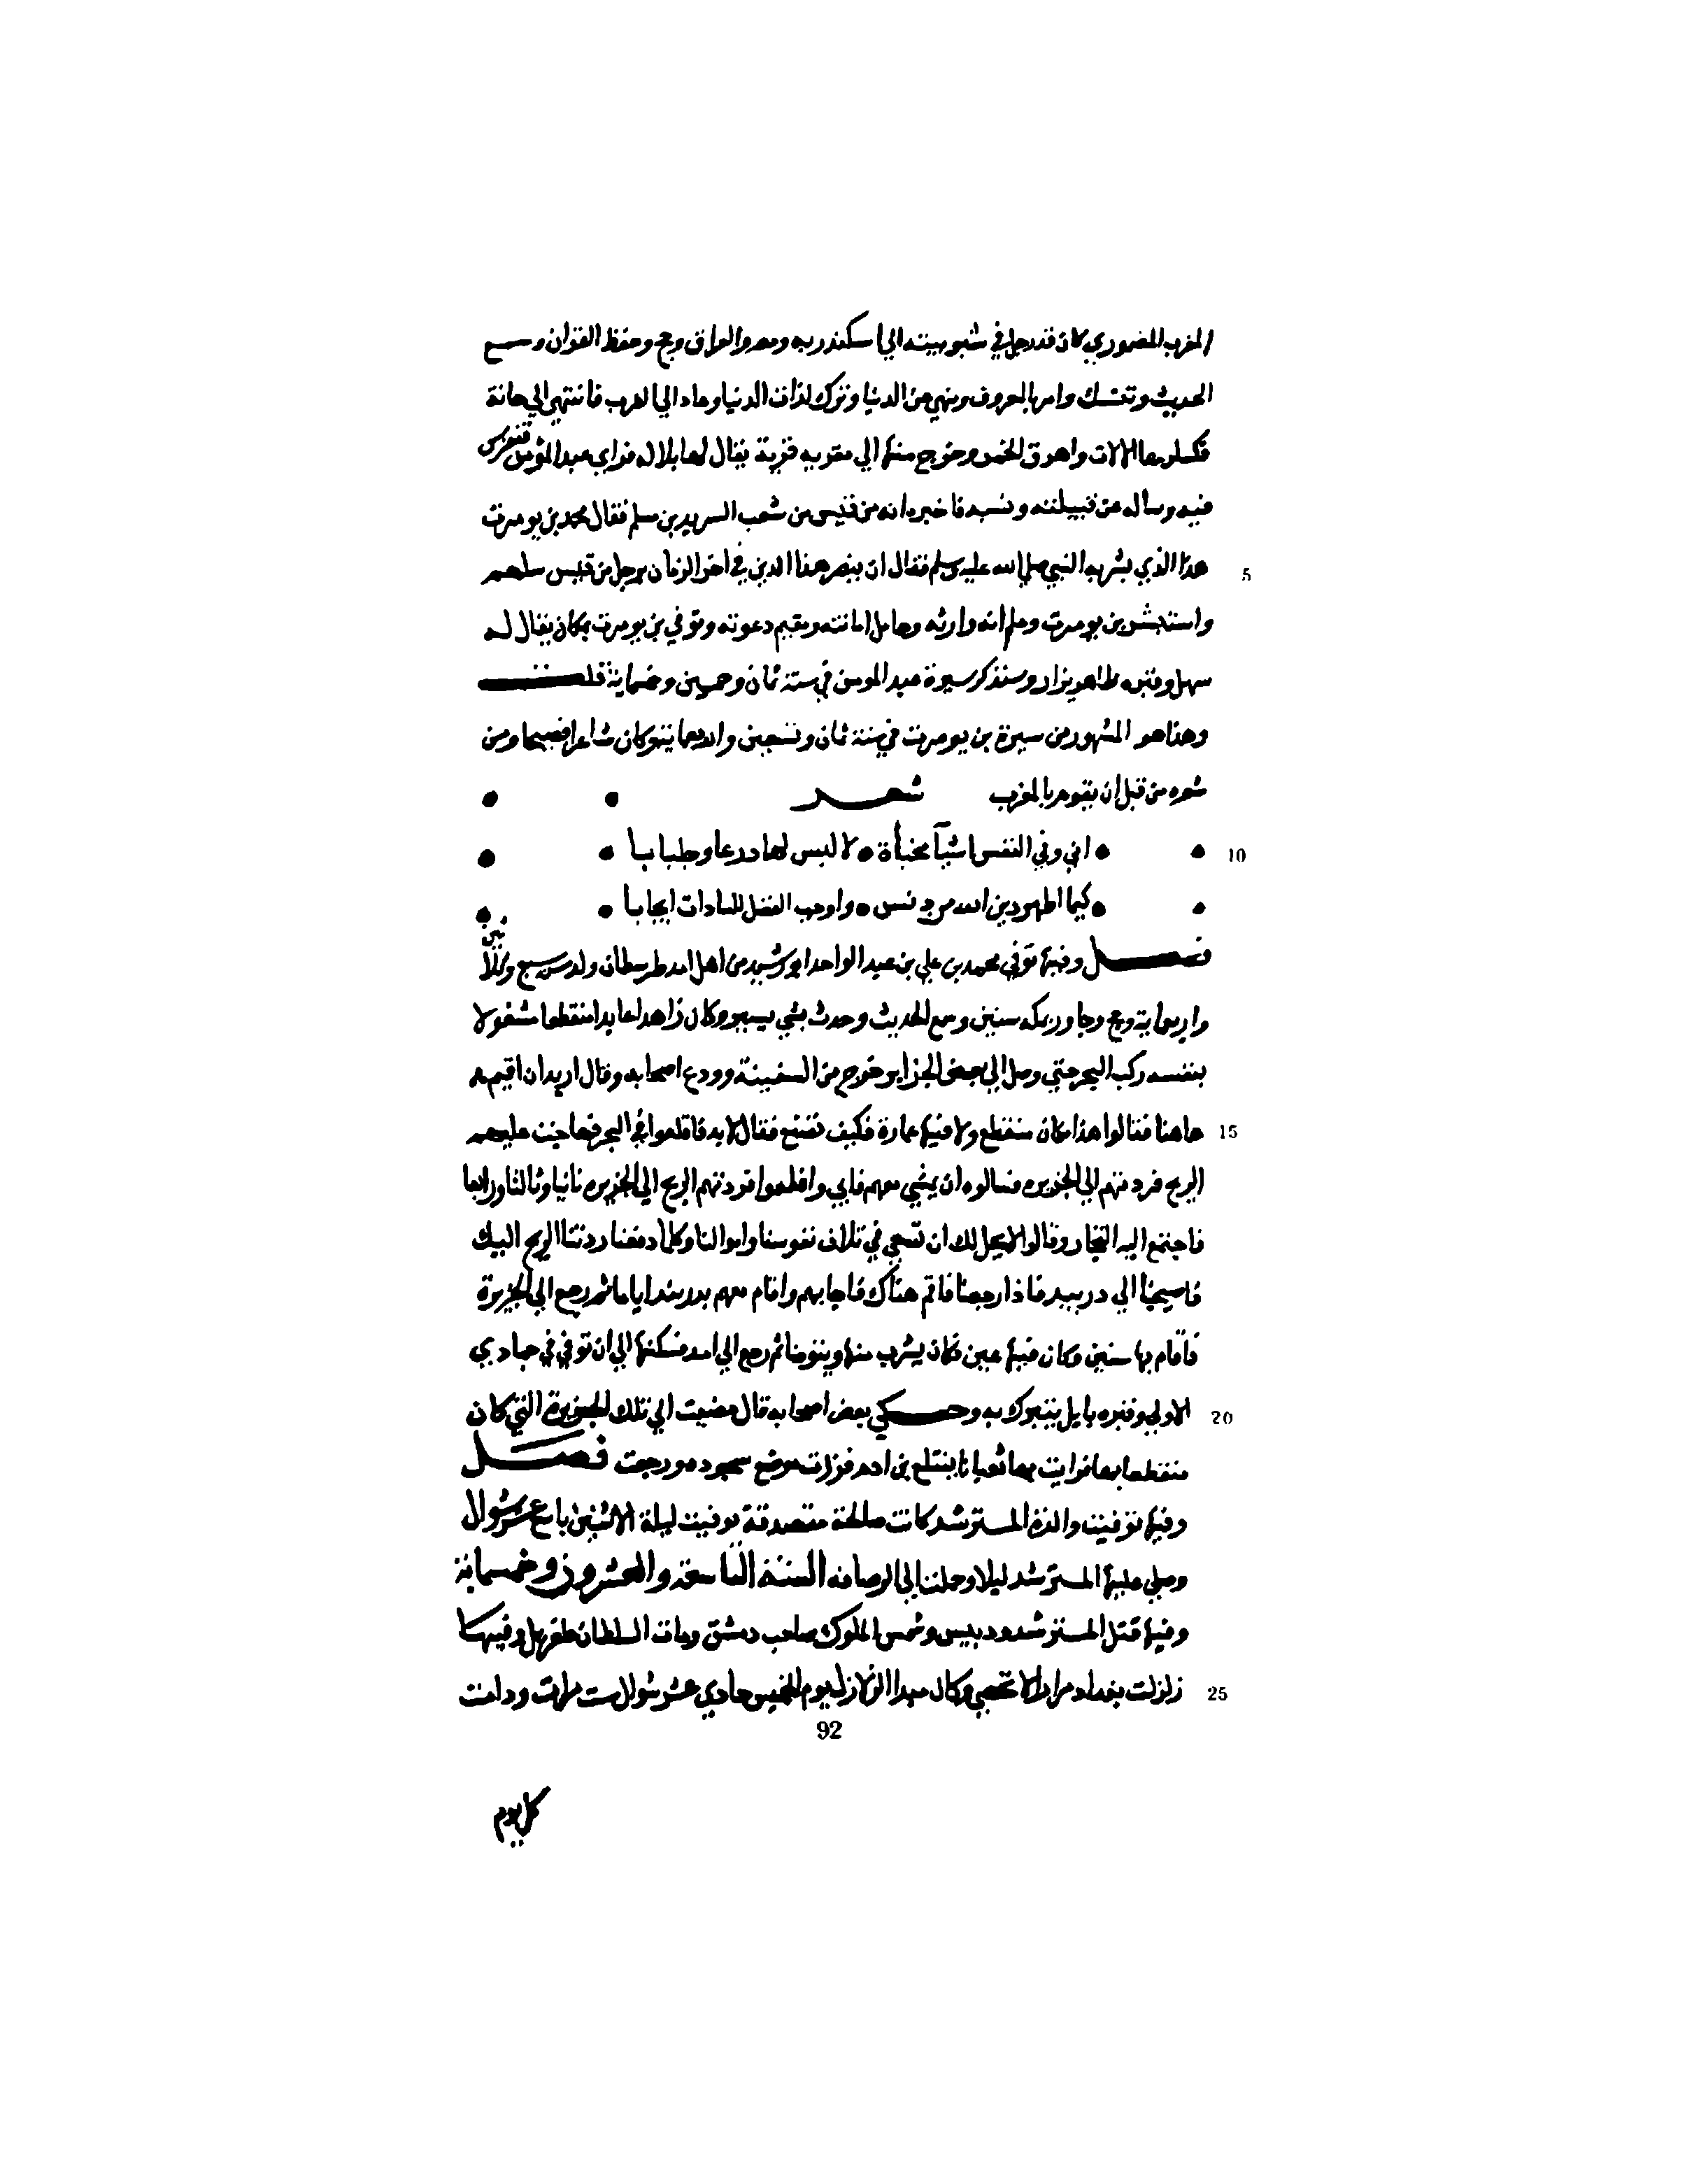 المغرب المنصوري كان قد رحل في شبوبيته الي اسكندريه ومصر والعراق وحج وحفظ القران وسمع
الحديث وتنسك وامر بالمعروف ونهي عن الدنيا وترك لذات الدنيا وعاد الي المغرب فانتهي الي حانة
فكسر بها الالات واهرق الخمر وخرج منها الي مقربه قرية يقال لها بلاله فراي عبد المؤمن تفرس
فيه وساله عن قبيلته ونسبه فاخبره انه من قيس من شعب السريد بن سلم فقال محمد بن يومرت
هذا الذي بشر به النبي صلي الله عليه وسلم فقال ان ينصر هذا الدين في اخر الزمان برجل من قيس سلهم
واستبشر بن يومرت وعلم انه وارثه وحامل امانته ومقيم دعوته وتوفي بن يومرت بمكان يقال له
سهل وقبره ظاهر يزار وسنذكر سيرة عبد المومن في سنة ثمان وخمسين وخمسماية قلت
وهذا هو المشهور من سيرة بن يومرت في سنة ثمان وتسعين واربعماية وكان شاعرا فصيحا ومن
شعره من قبل ان يقوم بالمغرب شعر
اني وفي النفس اشيآ مخبأة لا لبس لها درعا وجلبابا
كيما اطهر دين الله من دنس واوجب الفضل للسادات ايجابا
فصل وفيها توفي محمد بن علي بن عبد الواحد ابو رشيد من اهل امد طبرستان ولد سنة سبع وثلاثين
واربعماية وحج وجاور بمكه سنين وسمع الحديث وحدث بشي يسير وكان زاهدا عابدا منقطعا مشغولا
بنفسه ركب البحر حتي وصل الي بعض الجزاير خرج من السفينة وودع اصحابه وقال اريد ان اقيم
هاهنا فقالوا هذا مكان منقطع ولا فيها عمارة فكيف تصنع فقال لا بد فاقلعوا في البحر فهاجت عليهم
الريح فردتهم الي الجزيره فسالوه ان يمشي معهم فابي واقلعوا فردتهم الريح الي الجزيره ثانيا وثالثا ورابعا
فاجتمع اليه التجار وقالوا لا يحل لك ان تسعي في تلاف نفوسنا واموالنا وكلما دفعنا ردتنا الريح اليك
فاصحبنا الي دربيد فاذا رجعنا فاقم هناك فاجابهم واقام معهم بدربند اياما ثم رجع الي الجزيرة
فاقام بها سنين وكان فيها عين فكان يشرب منها ويتوضا ثم رجع الي امد فسكنها الي ان توفي في جمادي
الاولي وقبره بامل يتبرك به وحكي بعض اصحابه قال مضيت الي تلك الجزيرة التي كان
منقطعا بها فرايت بها ثعبانا يبتلع بن ادم فزرت موضع سجوده ورجعت فصل
وفيها توفيت والدة المسترشد كانت صالحة متصدقة توفيت ليلة الاثنين تاسع عشر شوال
وصلي عليها المسترشد ليلا وحملت الي الرصافه السنة التاسعة والعشرون وخمسماية
وفيها قتل المسترشد ودبيس وشمس الملوك صاحب دمشق ومات السلطان طغريل وفيها
زلزلت بغداد مرارا لا تحصي وكان مبدا الزلازل يوم الخميس حادي عشر شوال ست مرات ودامت
كل يوم
5
10
15
20
25
92